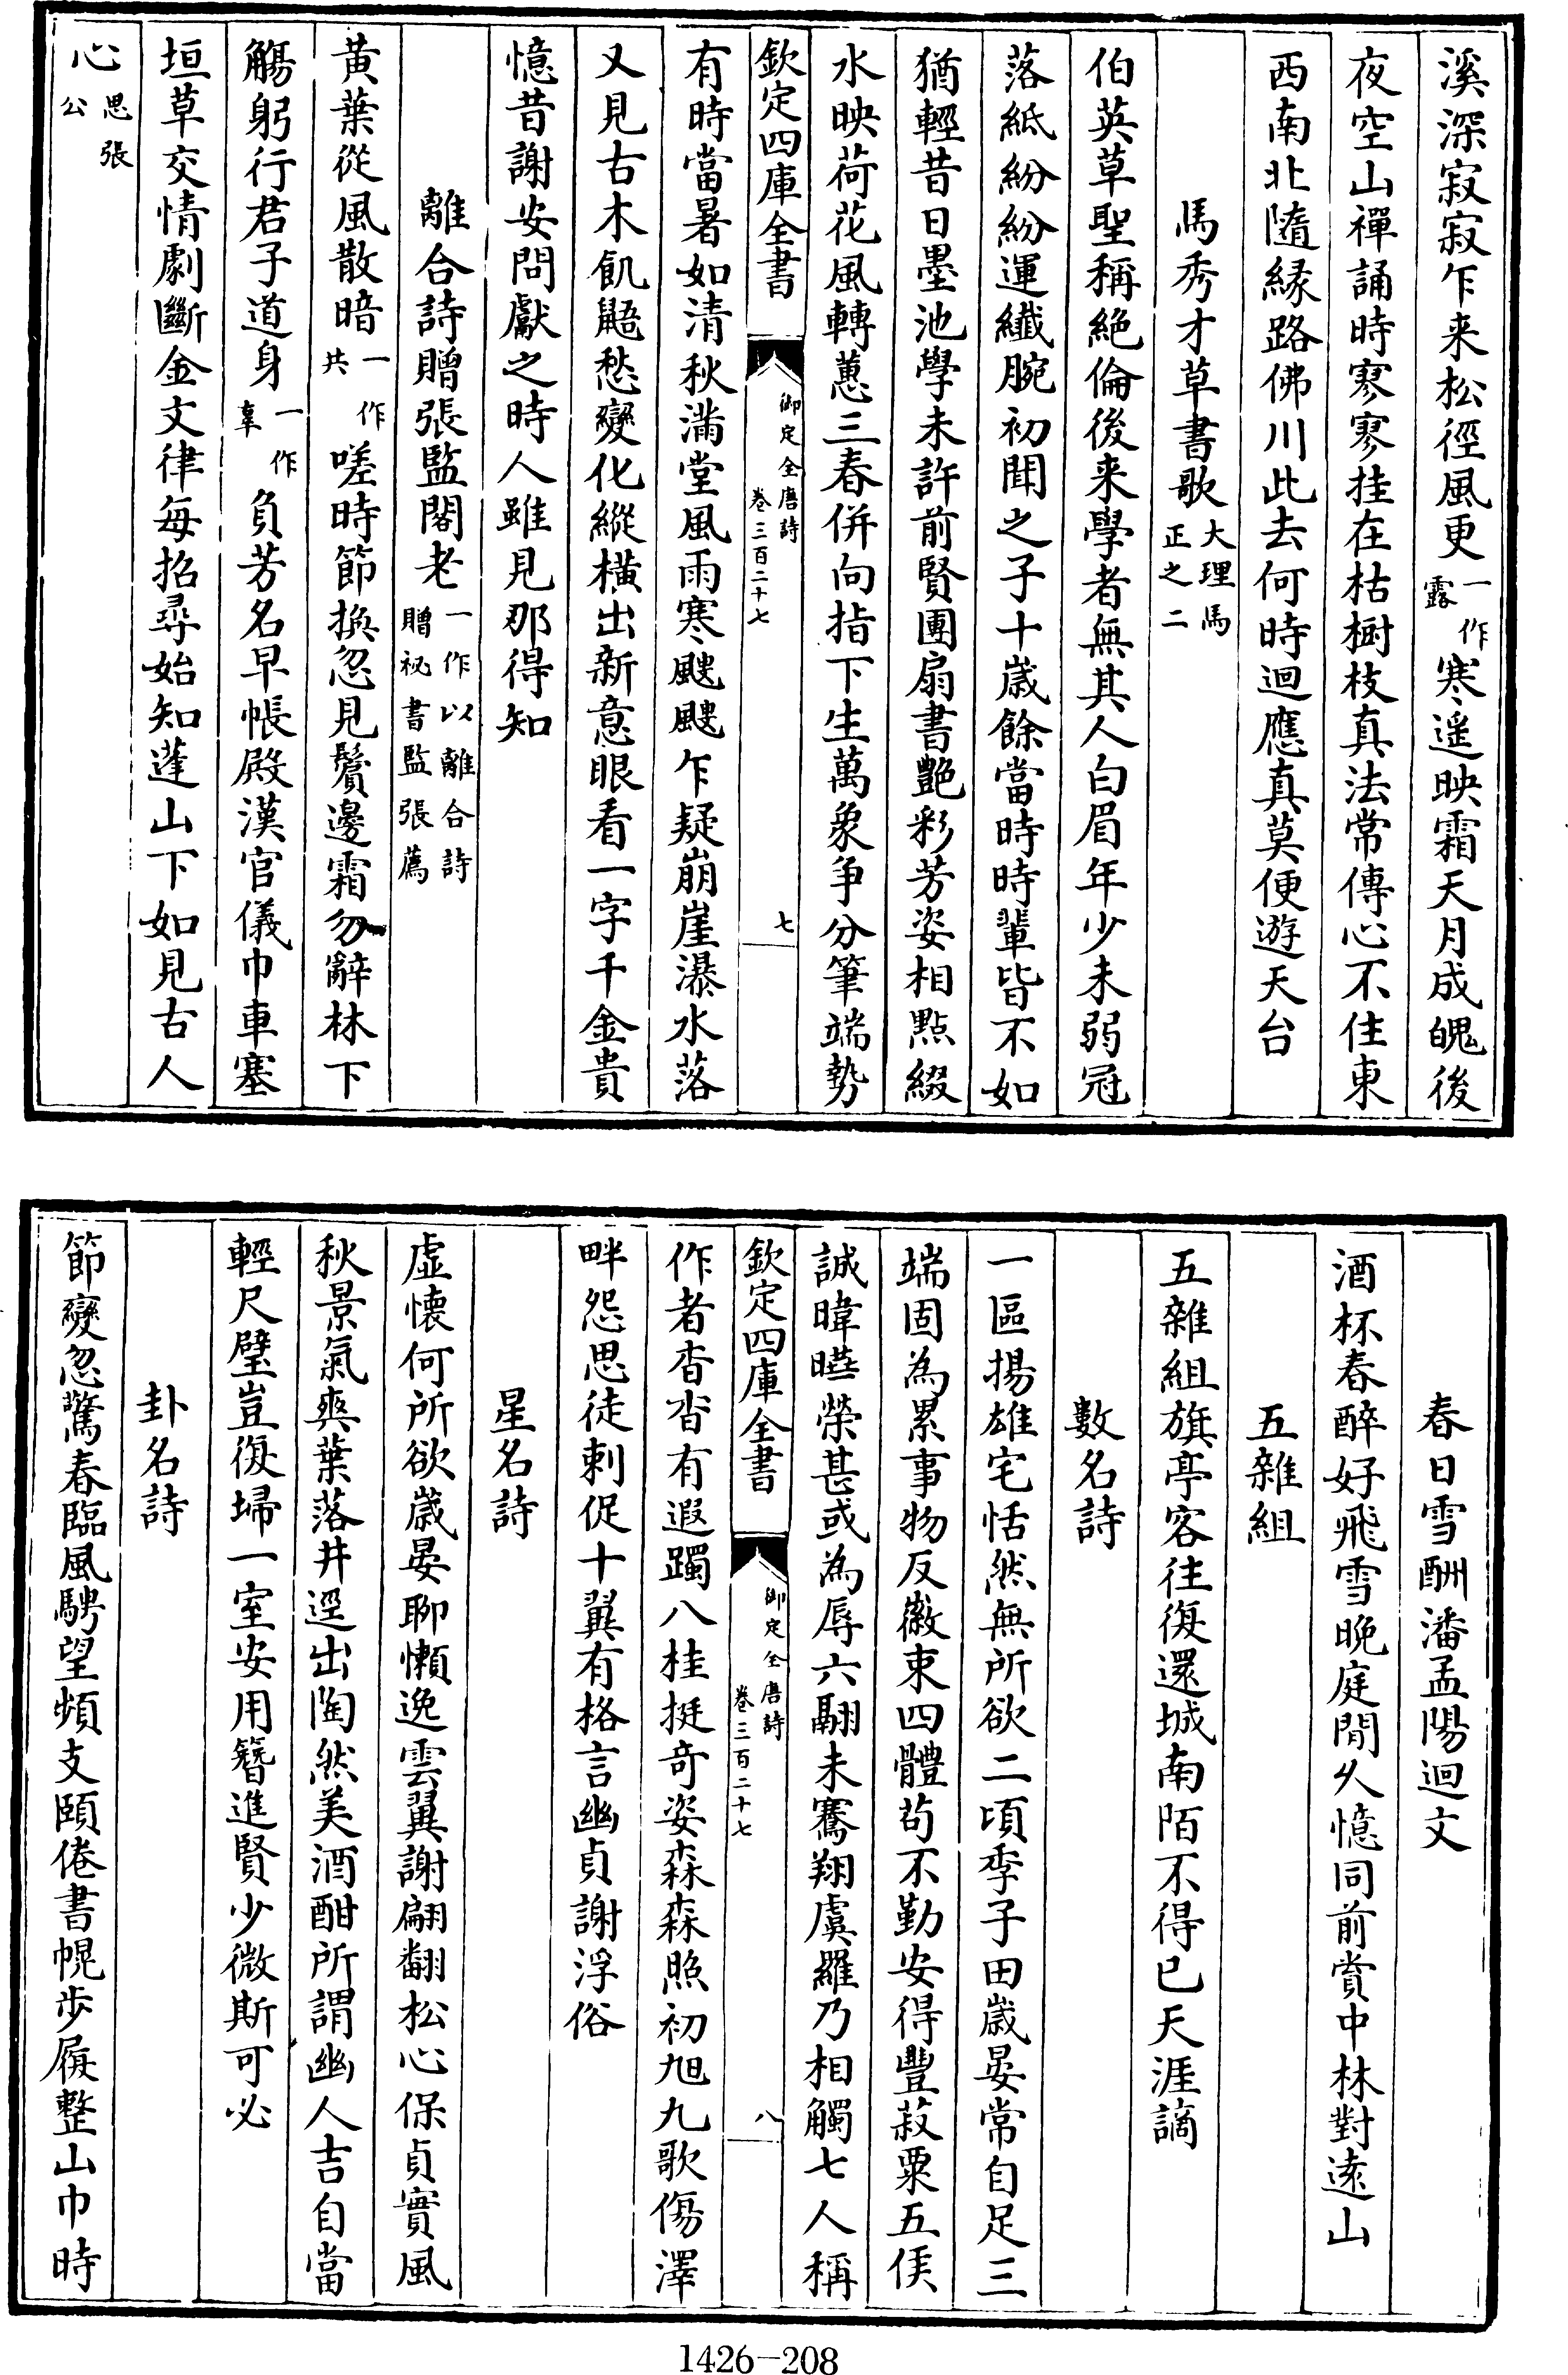 溪深寂寂乍来松徑風更一作露寒遥映霜天月成魄後
夜空山禪誦時寥寥挂在枯樹枝真法常傳心不住東
西南北隨緣路佛川此去何時迴應真莫便遊天台
馬秀才草書歌大理馬正之二
伯英草聖稱絶倫後来學者無其人白眉年少未弱冠
落紙紛紛運纖腕初聞之子十歳餘當時時輩皆不如
猶輕昔日墨池學未許前賢團扇書艷彩芳姿相點綴
水映荷花風轉蕙三春併向指下生萬象争分筆端勢
欽定四庫全書
御定全唐詩
卷三百二十七
七
有時當暑如清秋滿堂風雨寒颼颼乍疑崩崖瀑水落
又見古木飢鼯愁變化縱横出新意眼看一字千金貴
憶昔謝安問獻之時人雖見那得知
離合詩贈張監閣老一作以離合詩贈祕書監張薦
黄葉從風散暗一作共嗟時節換忽見鬢邊霜勿辭林下
觴躬行君子道身一作辜負芳名早帳殿漢官儀巾車塞
垣草交情劇斷金文律每招尋始知蓬山下如見古人
心思張公
春日雪酬潘孟陽迴文
酒杯春醉好飛雪晚庭閒久憶同前賞中林對遠山
五雜組
五雜組旗亭客往復還城南陌不得已天涯謫
數名詩
一區揚雄宅恬然無所欲二頃季子田歳晏常自足三
端固為累事物反徽束四體苟不勤安得豐菽粟五侯
誠暐曄榮甚或為辱六翮未騫翔虞羅乃相觸七人稱
欽定四庫全書
御定全唐詩
卷三百二十七
八
作者杳杳有遐躅八桂挺奇姿森森照初旭九歌傷澤
畔怨思徒刺促十翼有格言幽貞謝浮俗
星名詩
虚懐何所欲歳晏聊懶逸雲翼謝翩翻松心保貞實風
秋景氣爽葉落井逕出陶然美酒酣所謂幽人吉自當
輕尺璧豈復埽一室安用簪進賢少微斯可必
卦名詩
節變忽驚春臨風騁望頻支頤倦書幌步屐整山巾時
1426-208